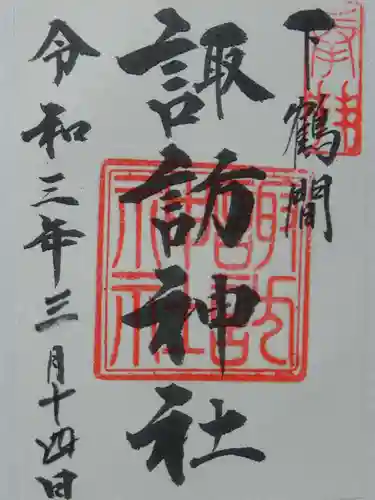 奉拝
下鶴間
諏訪神社
令和三年三月十四日
諏訪神社